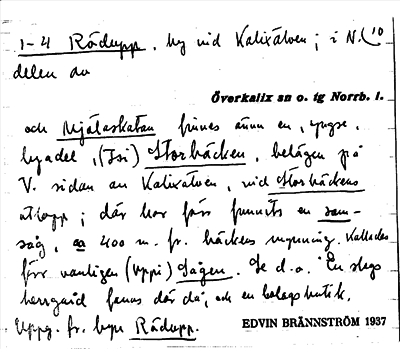 1-4 Rödupp. by vid Kalixälven; i N.
delen av
Överkalix sn o. tg Norrb. l.
och Mjölaskatan finnes även en, yngre,
byadel, (Isi) Storbäcken, belägen på
V. sidan av Kalixälven, vid Storbäckens
utlopp; där har förr funnits en ram-
såg, ca 400 m. fr. bäckens mynning. Kallades
förr vanligen (Uppi) Sågen. Se d.o. En slags
herrgård fanns där då, och en bolagsbutik.
Uppg. fr. byn Rödupp.
EDVIN BRÄNNSTRÖM 1937